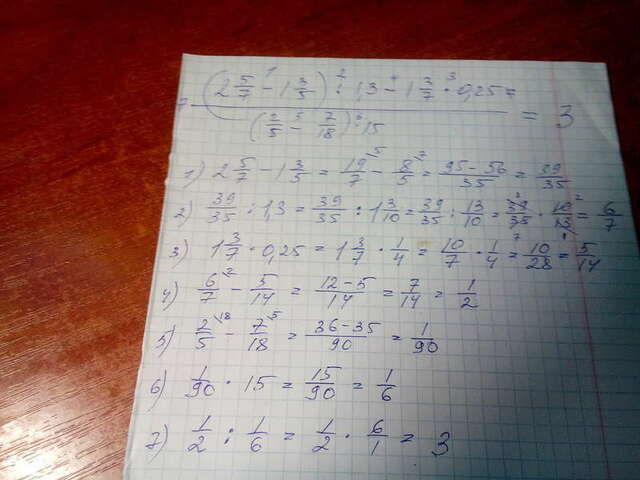 (2 5/7 - 1 3/5) : 1,3 - 1 3/7 · 0,25
(2/5 - 7/18) · 15
= 3
1) 2 5/7 - 1 3/5 = 19/7 - 8/5 = 95-56/35 = 39/35
2) 39/35 : 1,3 = 39/35 : 1 3/10 = 39/35 : 13/10 = 39/35 · 10/13 = 6/7
3) 1 3/7 · 0,25 = 1 3/7 · 1/4 = 10/7 · 1/4 = 10/28 = 5/14
4) 6/7 - 5/14 = 12-5/14 = 7/14 = 1/2
5) 2/5 - 7/18 = 36-35/90 = 1/90
6) 1/90 · 15 = 15/90 = 1/6
7) 1/2 : 1/6 = 1/2 · 6/1 = 3